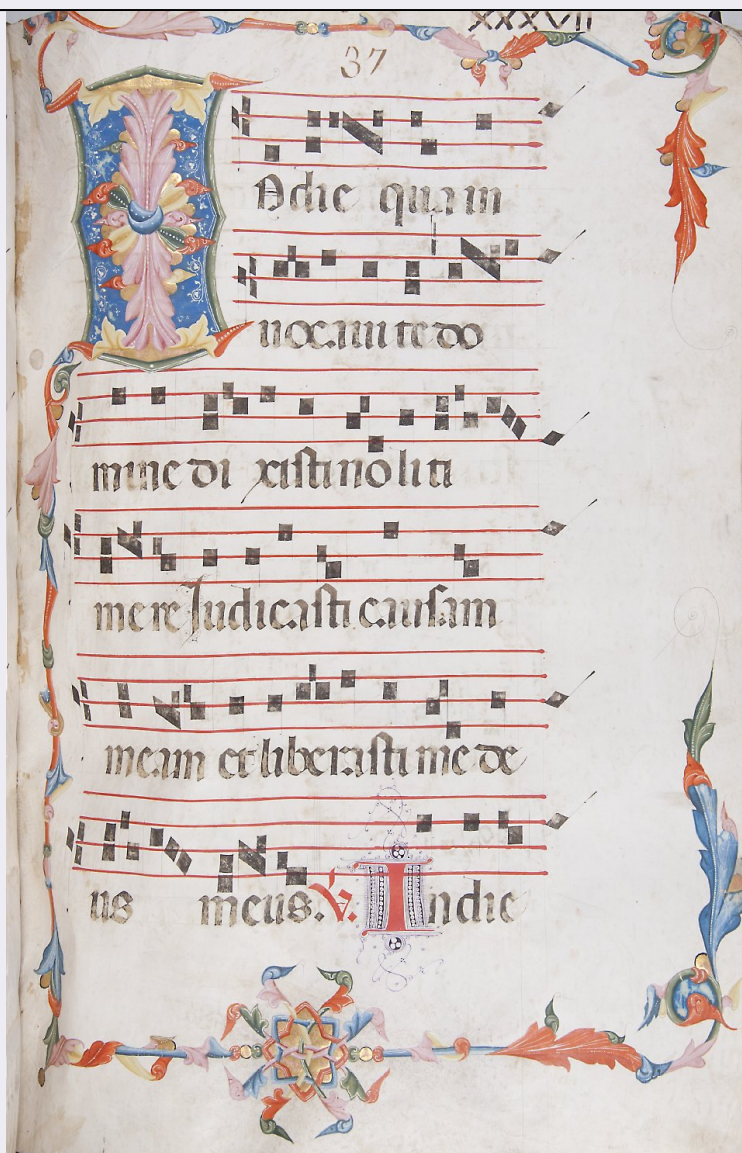 XXXVII
37
I N die quam
uocaui te do
mine di xisti noli ti
mere Judicasti causam
meam et liberasti me de
us meus. V. Indie